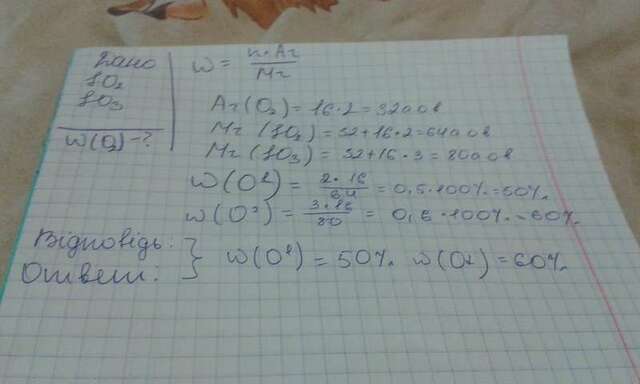 Дано
SO₂
SO₃
W(O₂)-?
W = n·Ar / Mr
Ar(O₂)=16·2=32аов
Mr(SO₂)=32+16·2=64аов
Mr(SO₃)=32+16·3=80аов
W(O²)=2·16/64=0,5·100%=50%
W(O²)=3·16/80=0,6·100%=60%
Відповідь:
Ответ:
W(O²)=50% W(O₂)=60%